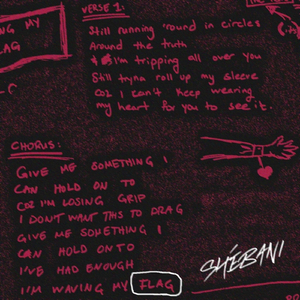 NG MY
LAG
VERSE 1:
Still running 'round in circles
Around the truth
I'm tripping all over you
Still tryna roll up my sleeve
Coz I can't keep wearing
my heart for you to see it.
CHORUS:
GIVE ME SOMETHING I
CAN HOLD ON TO
COZ I'M LOSING GRIP
I DON'T WANT THIS TO DRAG
GIVE ME SOMETHING I
CAN HOLD ONTO
I'VE HAD ENOUGH
I'M WAVING MY FLAG
SHÉBANI